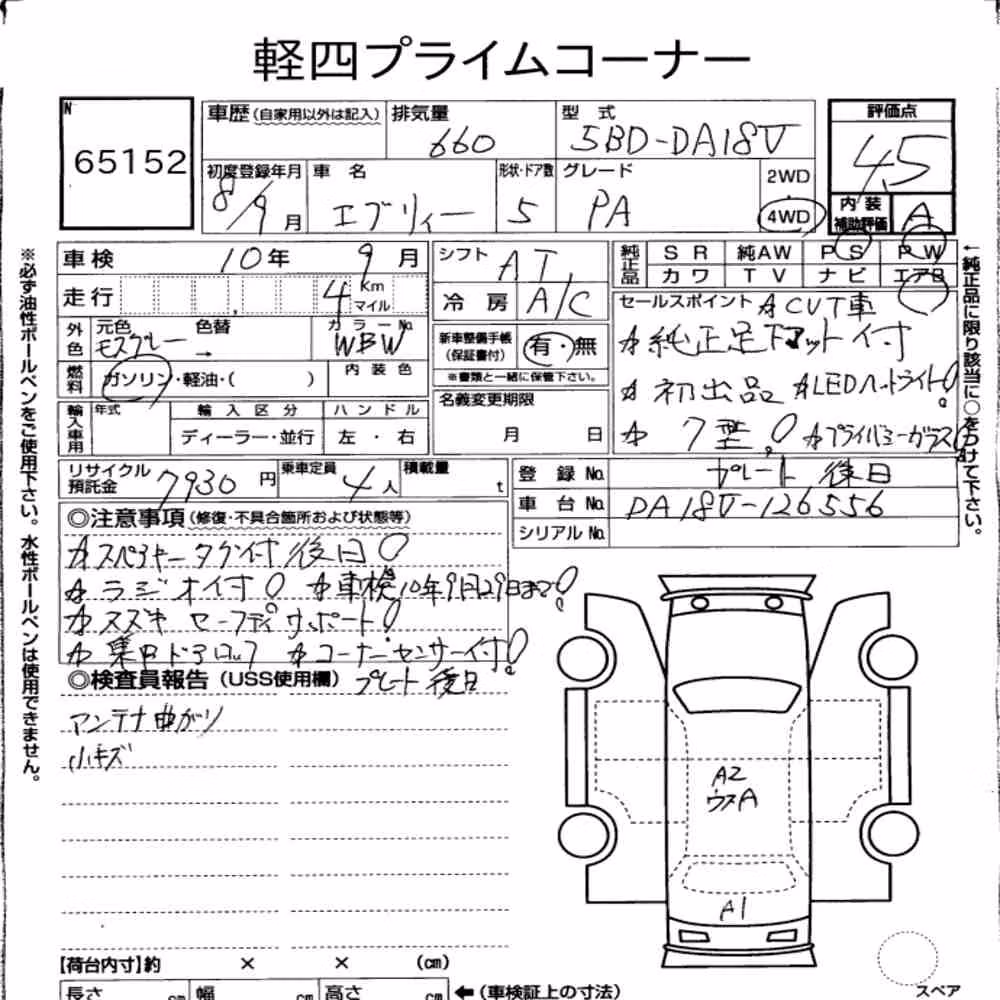 軽四プライムコーナー
N
65152
車歴(自家用以外は記入)
排気量
660
型式
5BD-DA18V
評価点
4.5
初度登録年月
8/9月
車名
エブリィー
形状・ドア数
5
グレード
PA
2WD
4WD
内装
補助評価
A
車検
10年 9月
走行
4
Km
マイル
外色
元色
モスグレー
色替
→
カラーNo.
WBW
燃料
ガソリン・軽油・( )
内装色
輸入車用
年式
輸入区分
ディーラー・並行
ハンドル
左・右
シフト
AT
冷房
A/C
新車整備手帳
(保証書付)
有・無
※書類と一緒に保管下さい。
名義変更期限
月 日
純正品
SR 純AW PS PW
カワ TV ナビ エアB
セールスポイント
☆CVT車
☆純正足下マット付
☆初出品 ☆LEDヘッドライト!
☆7型! ☆プライバシーガラス!
リサイクル
預託金
7930円
乗車定員
4人
積載量
t
登録No.
プレート後日
車台No.
DA18V-126556
シリアルNo.
◎注意事項(修復・不具合箇所および状態等)
☆スペアキータグ付後日!
☆ラジオ付! ☆車検10年9月29日まで!
☆スズキセーフティサポート!
☆集中ドアロック ☆コーナーセンサー付!
◎検査員報告(USS使用欄)
プレート後日
アンテナ曲がり
小キズ
A2
ウスA
A1
【荷台内寸】約 × × (cm)
長さ cm
幅 cm
高さ cm
←(車検証上の寸法)
スペア
※必ず油性ボールペンをご使用下さい。水性ボールペンは使用できません。
←純正品に限り該当に○をつけて下さい。